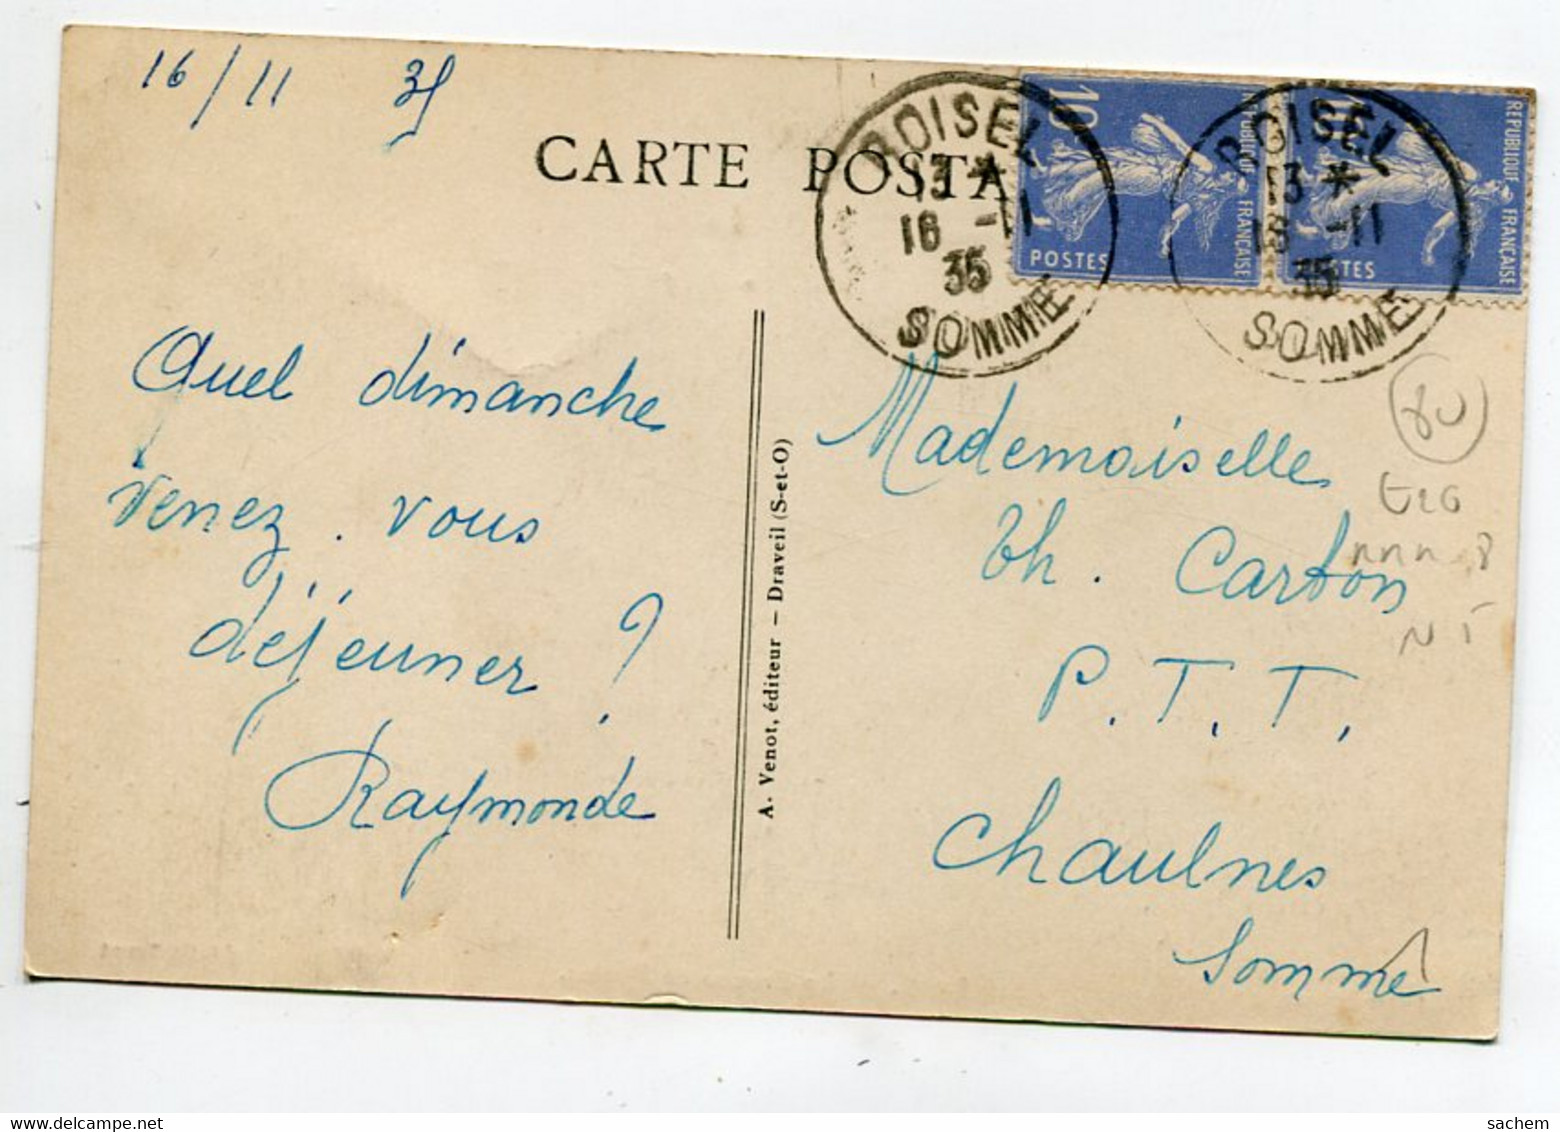 16/11 35
CARTE POSTA
ROISEL
13 *
16 -11
35
SOMME
10
POSTES
REPUBLIQUE FRANÇAISE
ROISEL
13 *
16 -11
35
SOMME
10
POSTES
REPUBLIQUE FRANÇAISE
Quel dimanche
venez. vous
déjeuner ?
Raymonde
A. Venot, éditeur — Draveil (S-et-O)
Mademoiselle
Th. Carton
P. T. T.
Chaulnes
Somme
delcampe.net
sachem